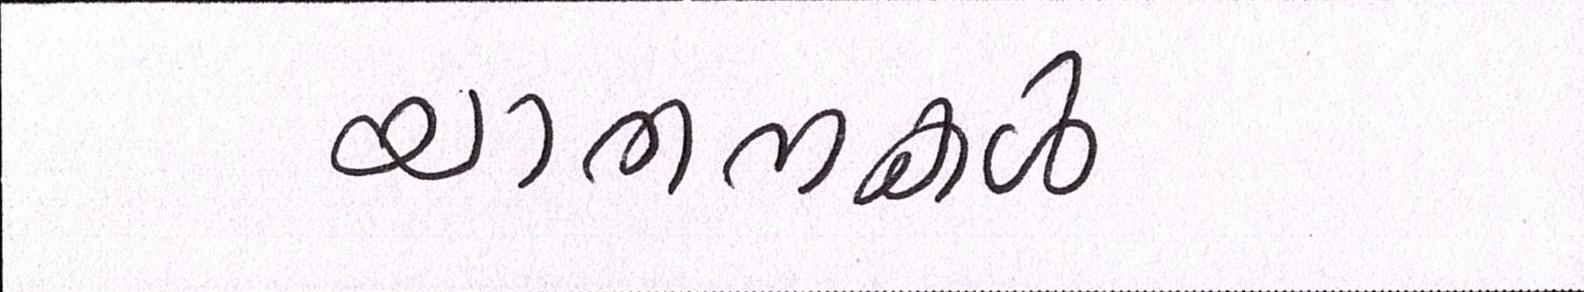 യാതനകൾ